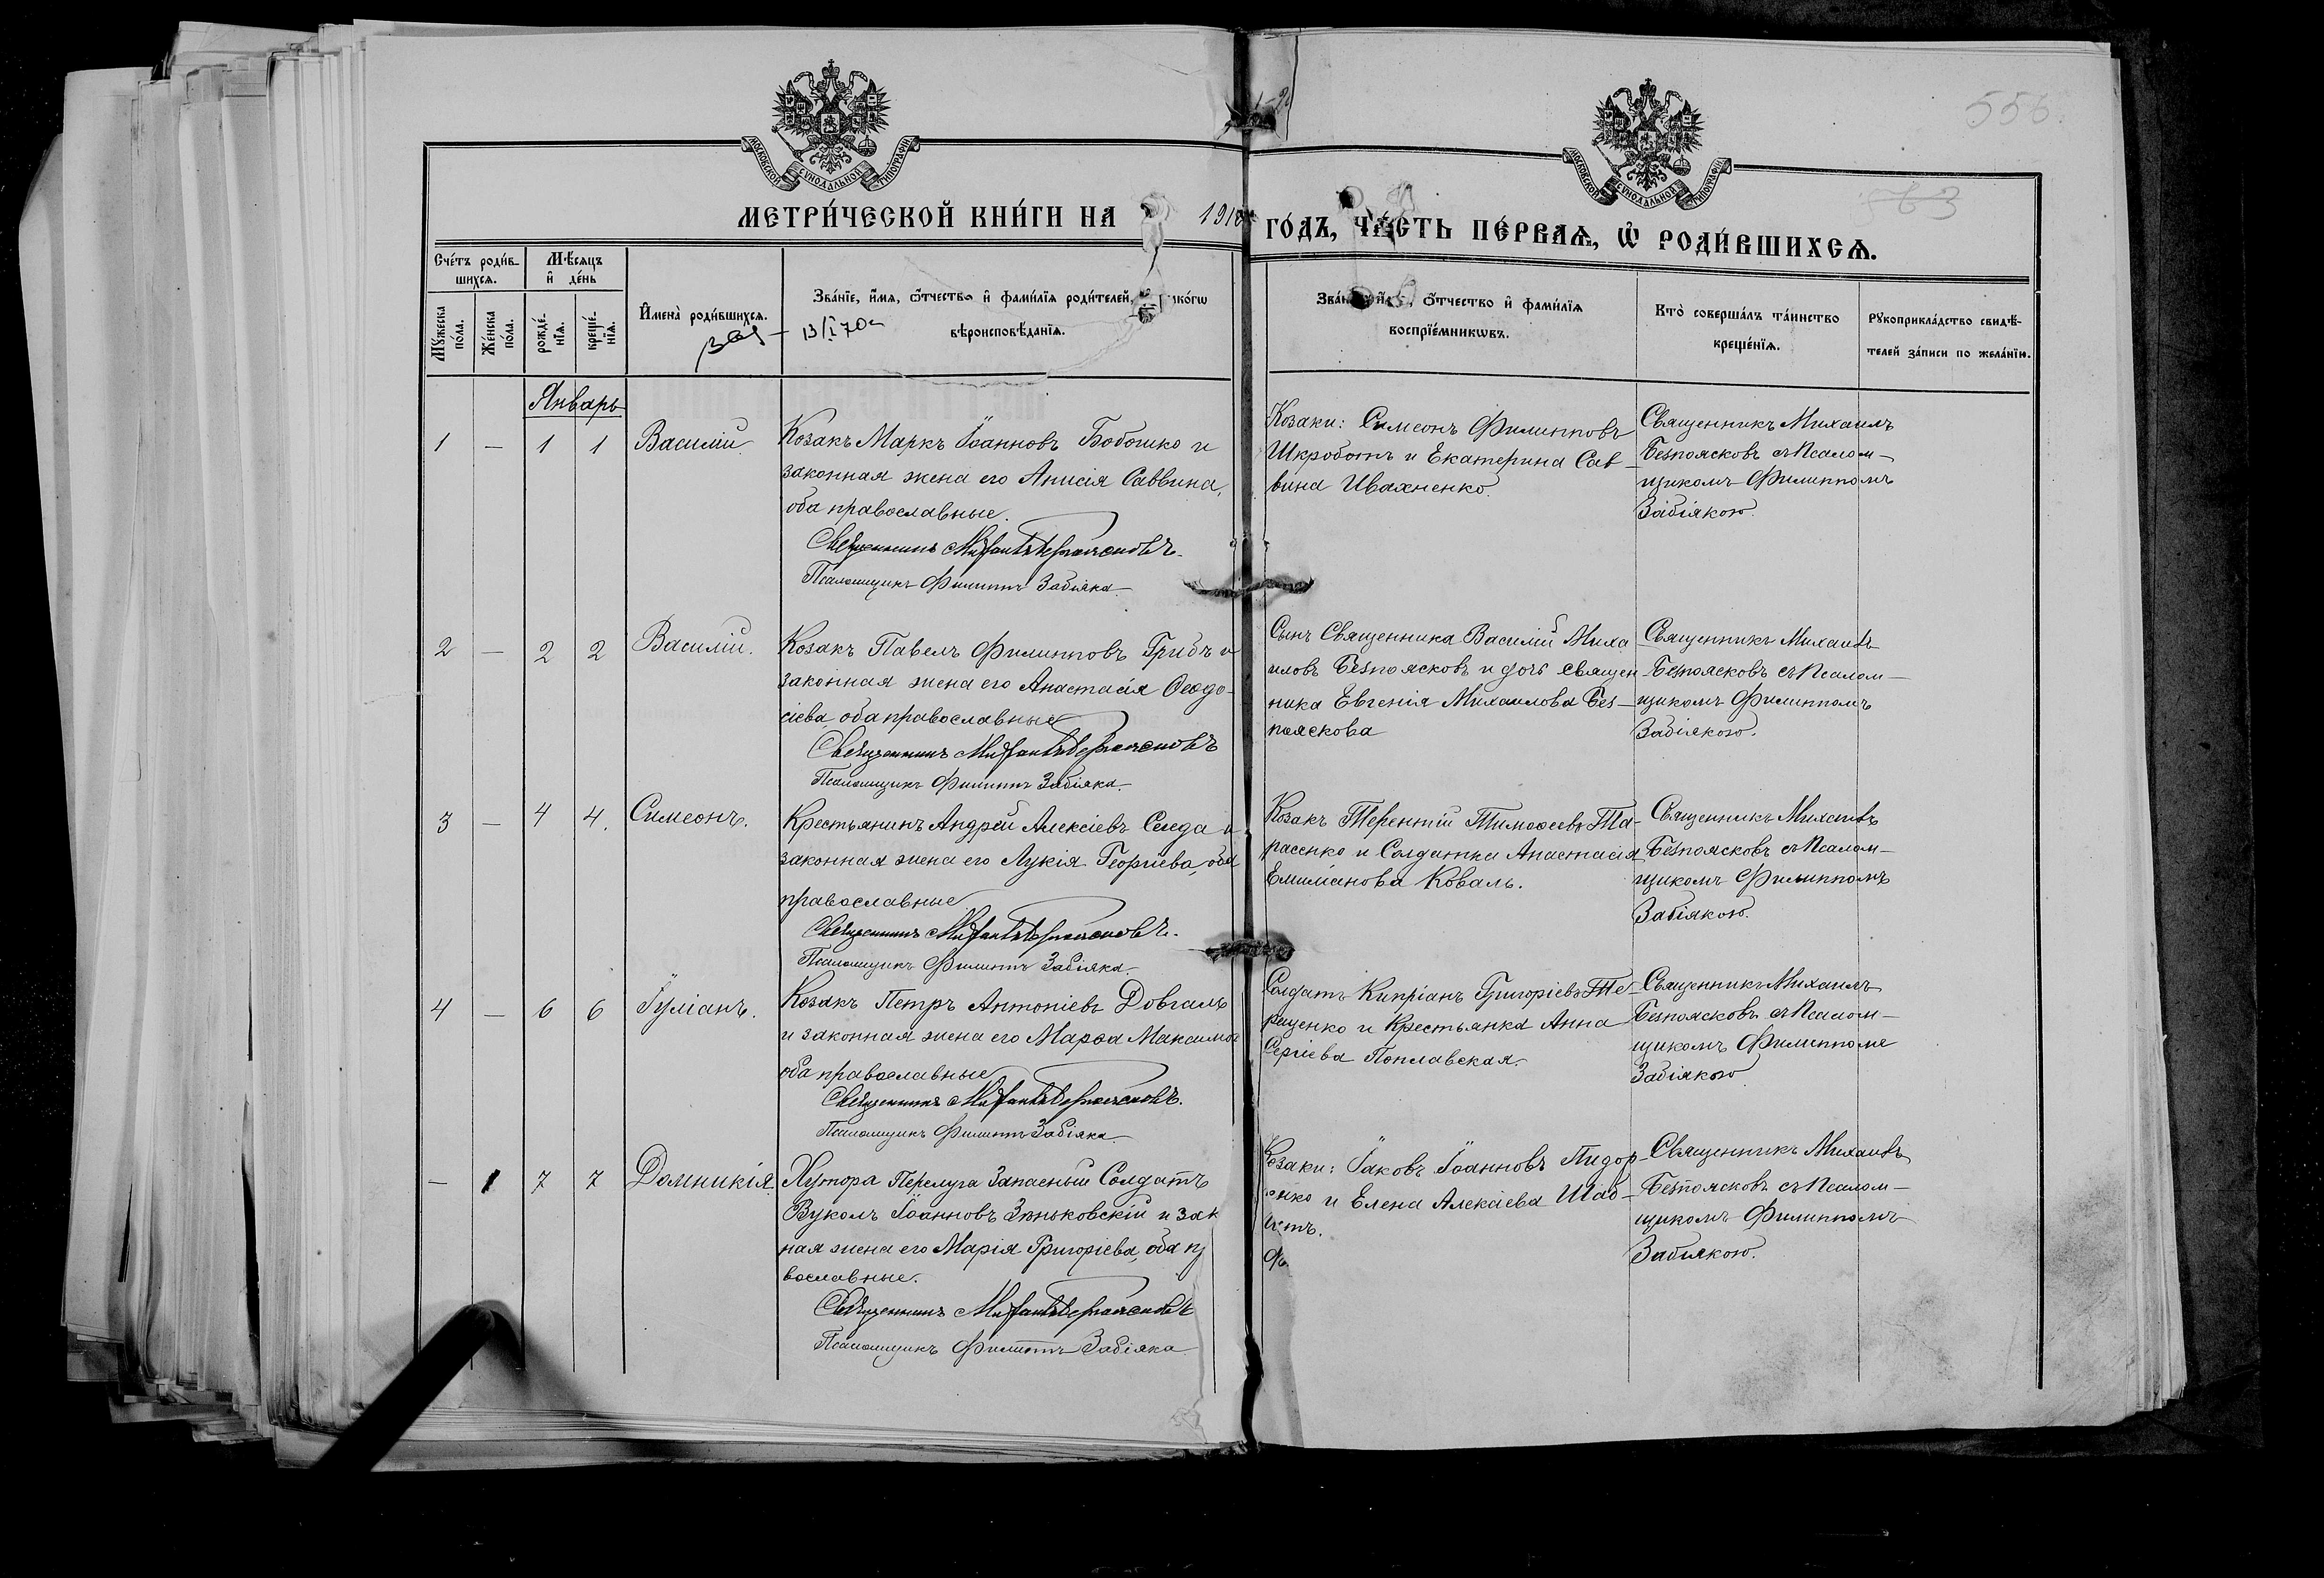 556.
МОСКОВСКОЙ СѴНОДАЛЬНОЙ ТИПОГРАФІИ
МОСКОВСКОЙ СѴНОДАЛЬНОЙ ТИПОГРАФІИ
МЕТРИ́ЧЕСКОЙ КНИ́ГИ НА 1918
ГО́ДЪ, ЧА́СТЬ ПЕ́РВАѦ, Ѡ҆ РОДИ́ВШИХСѦ.
Сче́тъ роди́в-
шихсѧ.
Мꙋ́жеска по́ла.
Же́нска по́ла.
Мѣ́сѧцъ
и҆ де́нь
рожде́-
нїѧ.
креще́-
нїѧ.
И҆мена̀ роди́вшихсѧ.
Зва́нїе, и҆́мѧ, ѻ҆́тчество и҆ фами́лїѧ роди́телей,
вѣроисповѣ́данїѧ.
13/I 70г
ѻ҆́тчество и҆ фами́лїѧ
воспрїе́мникωвъ.
Кто̀ соверша́лъ та́инство
креще́нїѧ.
Рꙋкоприкла́дство свидѣ́-
телей за́писи по жела́нїю.
Январь
1 — 1 1 Василій.
Козакъ Маркъ Іоанновъ Бобошко и
законная жена его Анисія Саввина,
оба православные.
Священникъ Михаилъ Безпоясковъ.
Псаломщикъ Филиппъ Забіяка.
Козаки: Симеонъ Филипповъ
Шкроботъ и Екатерина Сав-
вина Ивахненко.
Священникъ Михаилъ
Безпоясковъ съ Псалом-
щикомъ Филиппомъ
Забіякою.
2 — 2 2 Василій.
Козакъ Павелъ Филипповъ Грибъ и
законная жена его Анастасія Ѳеодо-
сіева, оба православные
Священникъ Михаилъ Безпоясковъ
Псаломщикъ Филиппъ Забіяка.
Сынъ Священника Василій Миха
иловъ Безпоясковъ и дочь священ
ника Евгенія Михаилова Без-
пояскова
Священникъ Михаилъ
Безпоясковъ съ Псалом-
щикомъ Филиппомъ
Забіякою.
3 — 4 4. Симеонъ.
Крестьянинъ Андрей Алексіевъ Середа и
законная жена его Лукія Георгіева, оба
православные
Священникъ Михаилъ Безпоясковъ.
Псаломщикъ Филиппъ Забіяка.
Козакъ Терентій Тимоѳеевъ Та-
расенко и Солдатка Анастасія
Емиліанова Коваль.
Священникъ Михаилъ
Безпоясковъ съ Псалом-
щикомъ Филиппомъ
Забіякою.
4 — 6 6 Іуліанъ.
Козакъ Петръ Антоніевъ Довгаль
и законная жена его Марѳа Максимов
оба православные
Священникъ Михаилъ Безпоясковъ.
Псаломщикъ Филиппъ Забіяка.
Солдатъ Кипріанъ Григоріевъ Те-
рещенко и Крестьянка Анна
Сергіева Поплавская.
Священникъ Михаилъ
Безпоясковъ съ Псалом-
щикомъ Филиппомъ
Забіякою
— 1 7 7 Домникія.
Хутора Перелуга Запасный Солдатъ
Вуколъ Іоанновъ Зѣньковскій и зак
ная жена его Марія Григоріева, оба п
вославные.
Священникъ Михаилъ Безпоясковъ
Псаломщикъ Филиппъ Забіяка.
Козаки: Іаковъ Іоанновъ Пидор-
енко и Елена Алексіева Шаб-
Священникъ Михаилъ
Безпоясковъ съ Псалом-
щикомъ Филиппомъ
Забіякою.